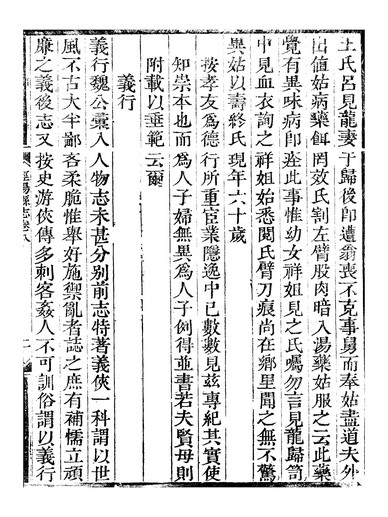 王氏呂見龍妻于歸後卽遭翁喪不克事舅而奉姑盡道夫外
出值姑病藥餌罔效氏割左臂股肉暗入湯藥姑服之云此藥
覺有異味病卽痊此事惟幼女祥姐見之氏囑勿言見龍歸笥
中見血衣詢之祥姐始悉閱氏臂刀痕尚在鄉里聞之無不驚
異姑以壽終氏現年六十歲
按孝友為德行所重宦業隱逸中已數數見茲專紀其實使
知崇本也而為人子婦無異為人子例得並書若夫賢母則
附載以垂範云爾
義行
義行魏公彙入人物志未甚分別前志特著義俠一科謂以世
風不古大半鄙客柔脆惟舉好施禦亂者誌之庶有補懦立頑
廉之義後志又按史游俠傳多刺客姦人不可訓俗謂以義行